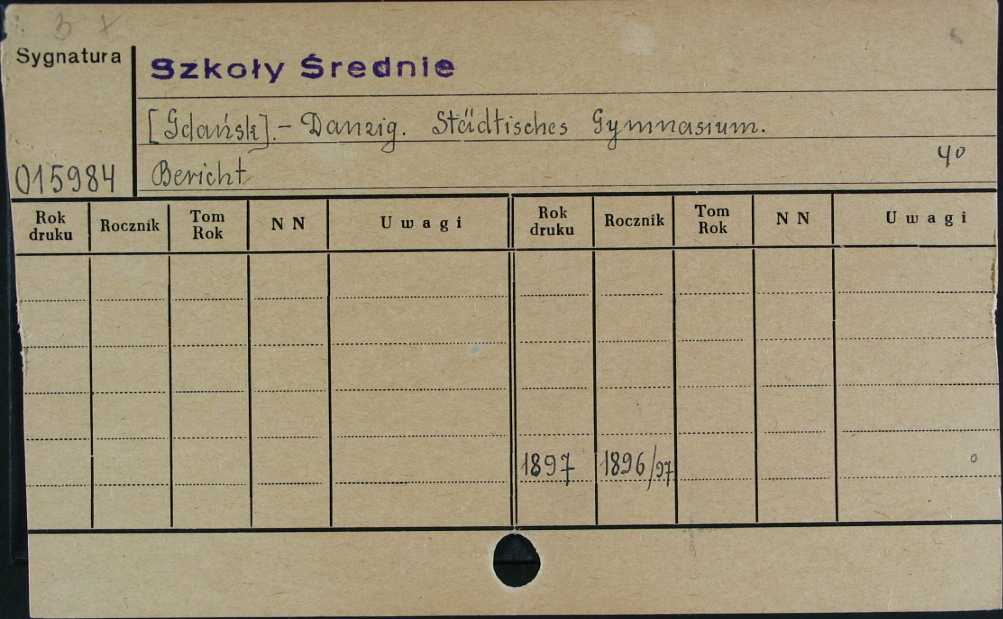 3 x
Sygnatura
Szkoły Średnie
[Gdańsk].- Danzig. Städtisches Gymnasium.
4°
015984
Bericht
Rok druku Rocznik Tom Rok N N Uwagi Rok druku Rocznik Tom Rok N N Uwagi
1897 1896/97